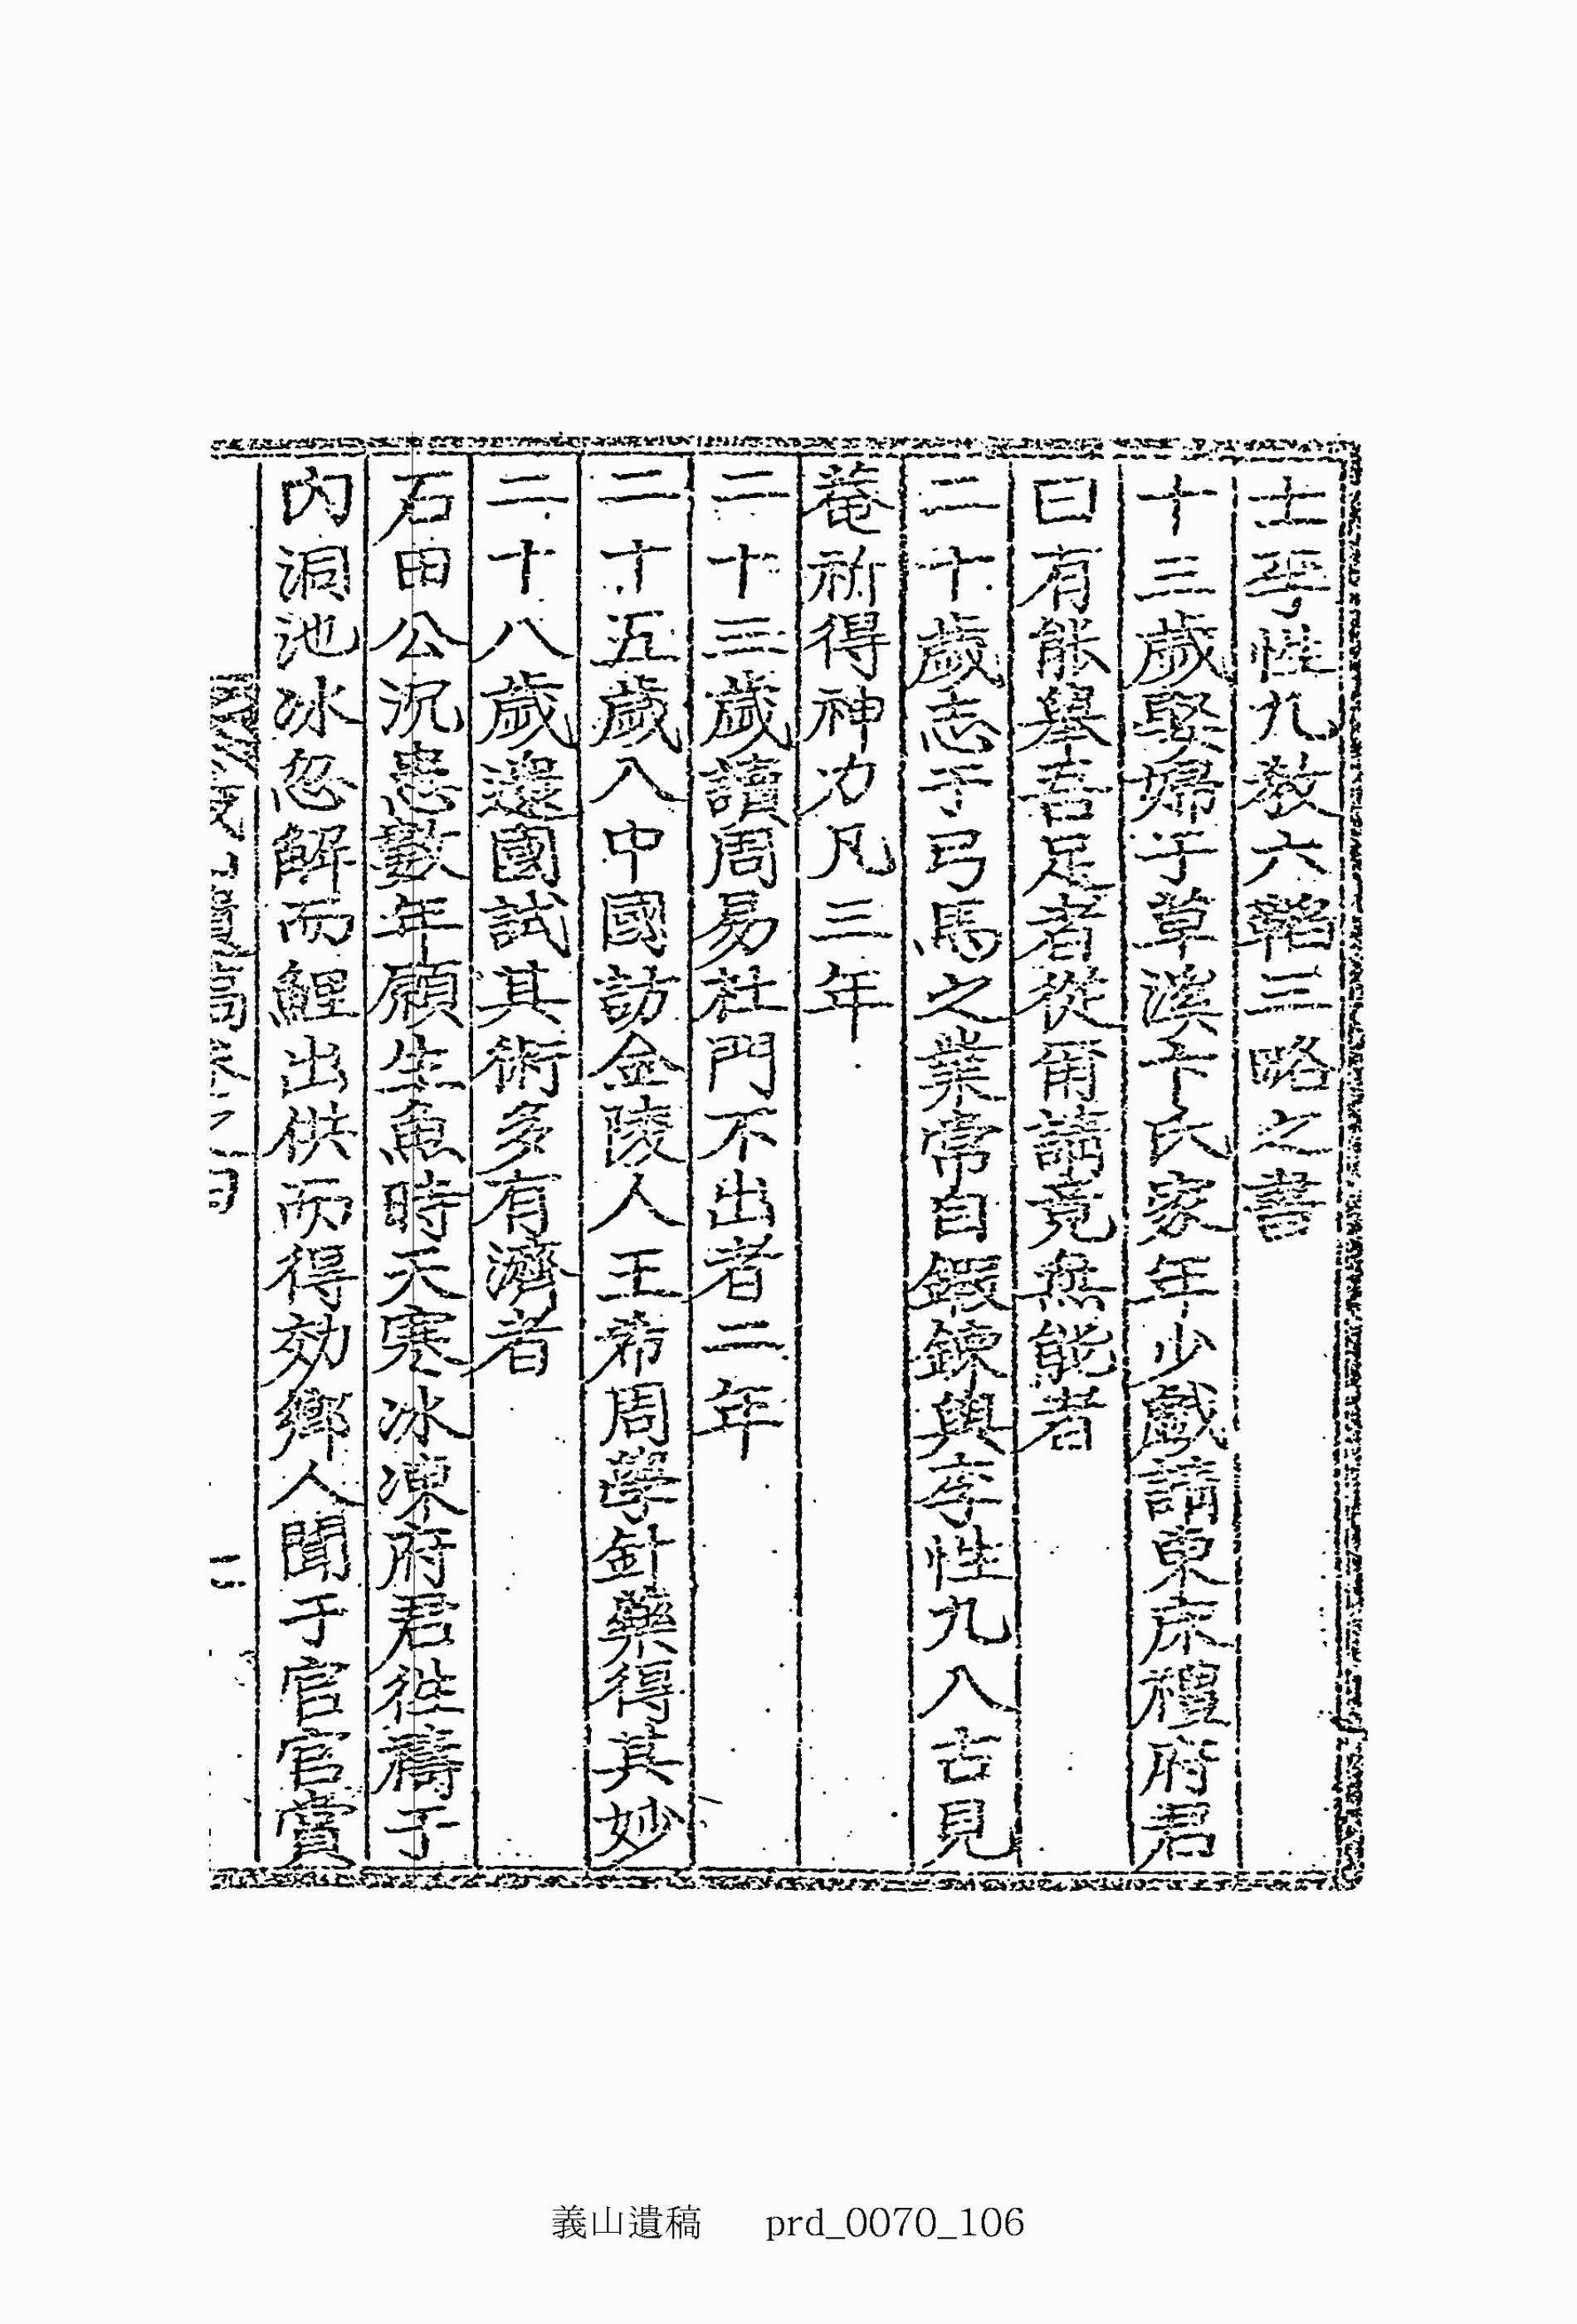 士李性九教六韜三略之書
十三歲娶婦于草溪卞氏家年少戱請東床禮府君
曰有能擧吾足者從爾請竟無能者
二十歲志于弓馬之業常自鍛鍊與李性九入古見
菴祈得神力凡三年
二十三歲讀周易杜門不出者二年
二十五歲入中國訪金陵人王希周學針藥得其妙
二十八歲還國試其術多有濟者
石田公沉患數年願生魚時天寒冰凍府君徃禱于
內洞池冰忽解而鯉出供而得効鄉人聞于官官賞
二
義山遺稿 prd_0070_106